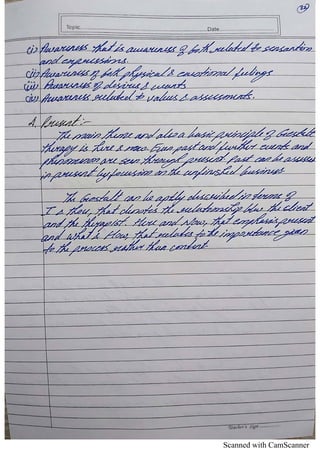 Topic Date
(i) Awareness that is awareness of both related to sensation
and expressions.
(ii) Awareness of both physical & emotional feelings
(iii) Awareness of desires & wants
(iv) Awareness related to values & assessments.
4. Present :-
The main theme and also a basic principle of Gestalt
therapy is here & now. Even past and further events and
phenomenon are seen through present. Past can be assess
in present by focusion on the unfinished business
The Gestalt can be aptly described in terms of
I & thou, that denotes the relationship b/w the client
and the therapist. Here and Now, that emphasis present
and what & How that relates to the importance given
to the process rather than content
Teacher's Sign
Scanned with CamScanner